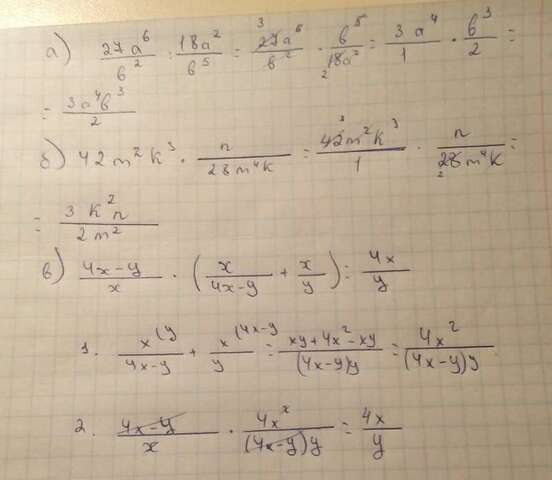 а) 27a⁶/b² : 18a²/b⁵ = 27a⁶/b² · b⁵/18a² = 3a⁴/1 · b³/2 =
= 3a⁴b³/2
б) 42m²k³ · n/28m⁴k = 42m²k³/1 · n/28m⁴k =
= 3k²n/2m²
в) (4x-y)/x · (x/(4x-y) + x/y) = 4x/y
1. x(y/(4x-y) + x(4x-y/y = (xy+4x²-xy)/((4x-y)y) = 4x²/((4x-y)y)
2. (4x-y)/x · 4x^x/((4x-y)y) = 4x/y